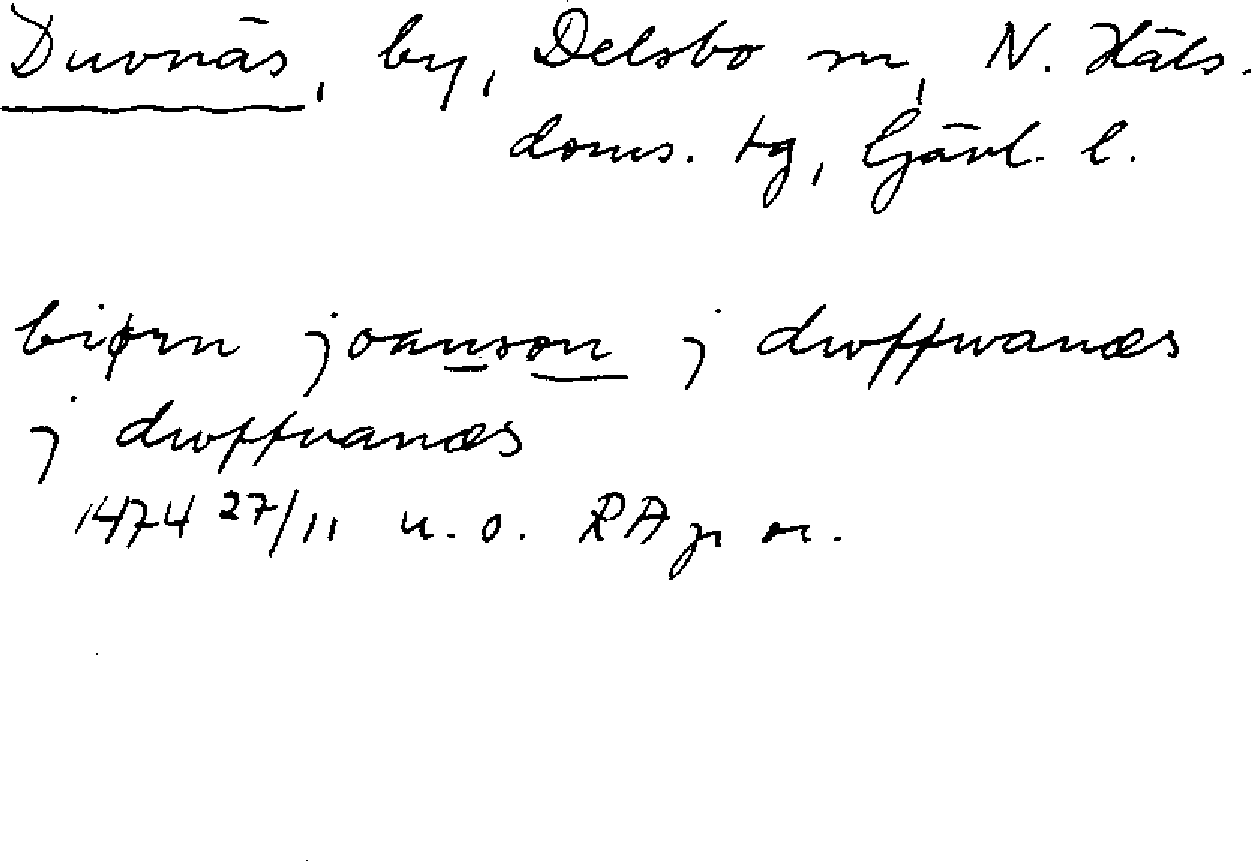 Duvnäs, by, Delsbo sn, N. Häls.
doms. tg, Gävl. l.
biørn joanson j dwffwanæs
j dwffvanæs
1474 27/11 u. o. RAp or.